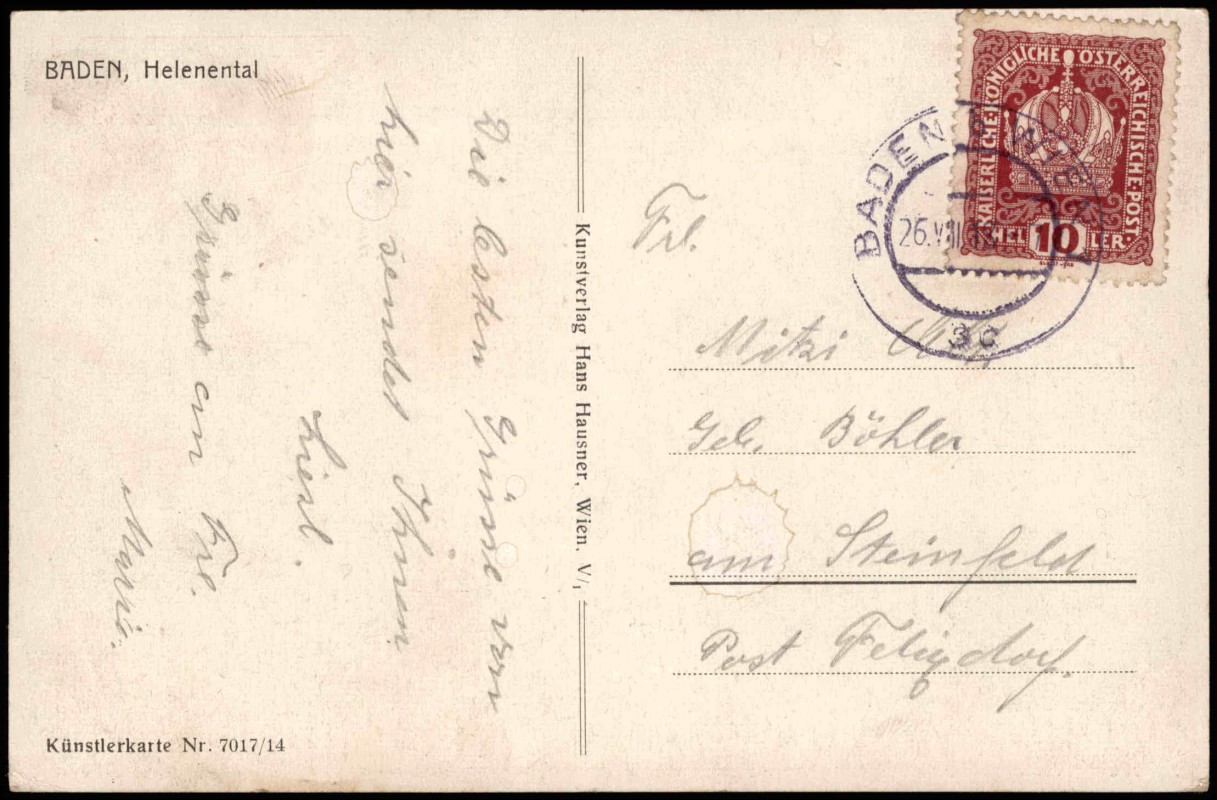 BADEN, Helenental
Die besten Grüsse von
hier sendet Ihnen
Liesl.
Grüsse an Frl.
Marie.
Künstlerkarte Nr. 7017/14
Kunstverlag Hans Hausner, Wien. V/1
KAISERLICHE KÖNIGLICHE ÖSTERREICHISCHE POST
HELLER
10
BADEN
26.VIII.18
3c
Frl.
Mitzi
Geb. Böhler
am Steinfeld
Post Felixdorf.